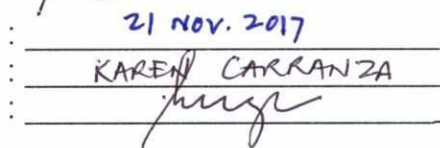 : 21 NOV. 2017
: KAREN CARRANZA
: